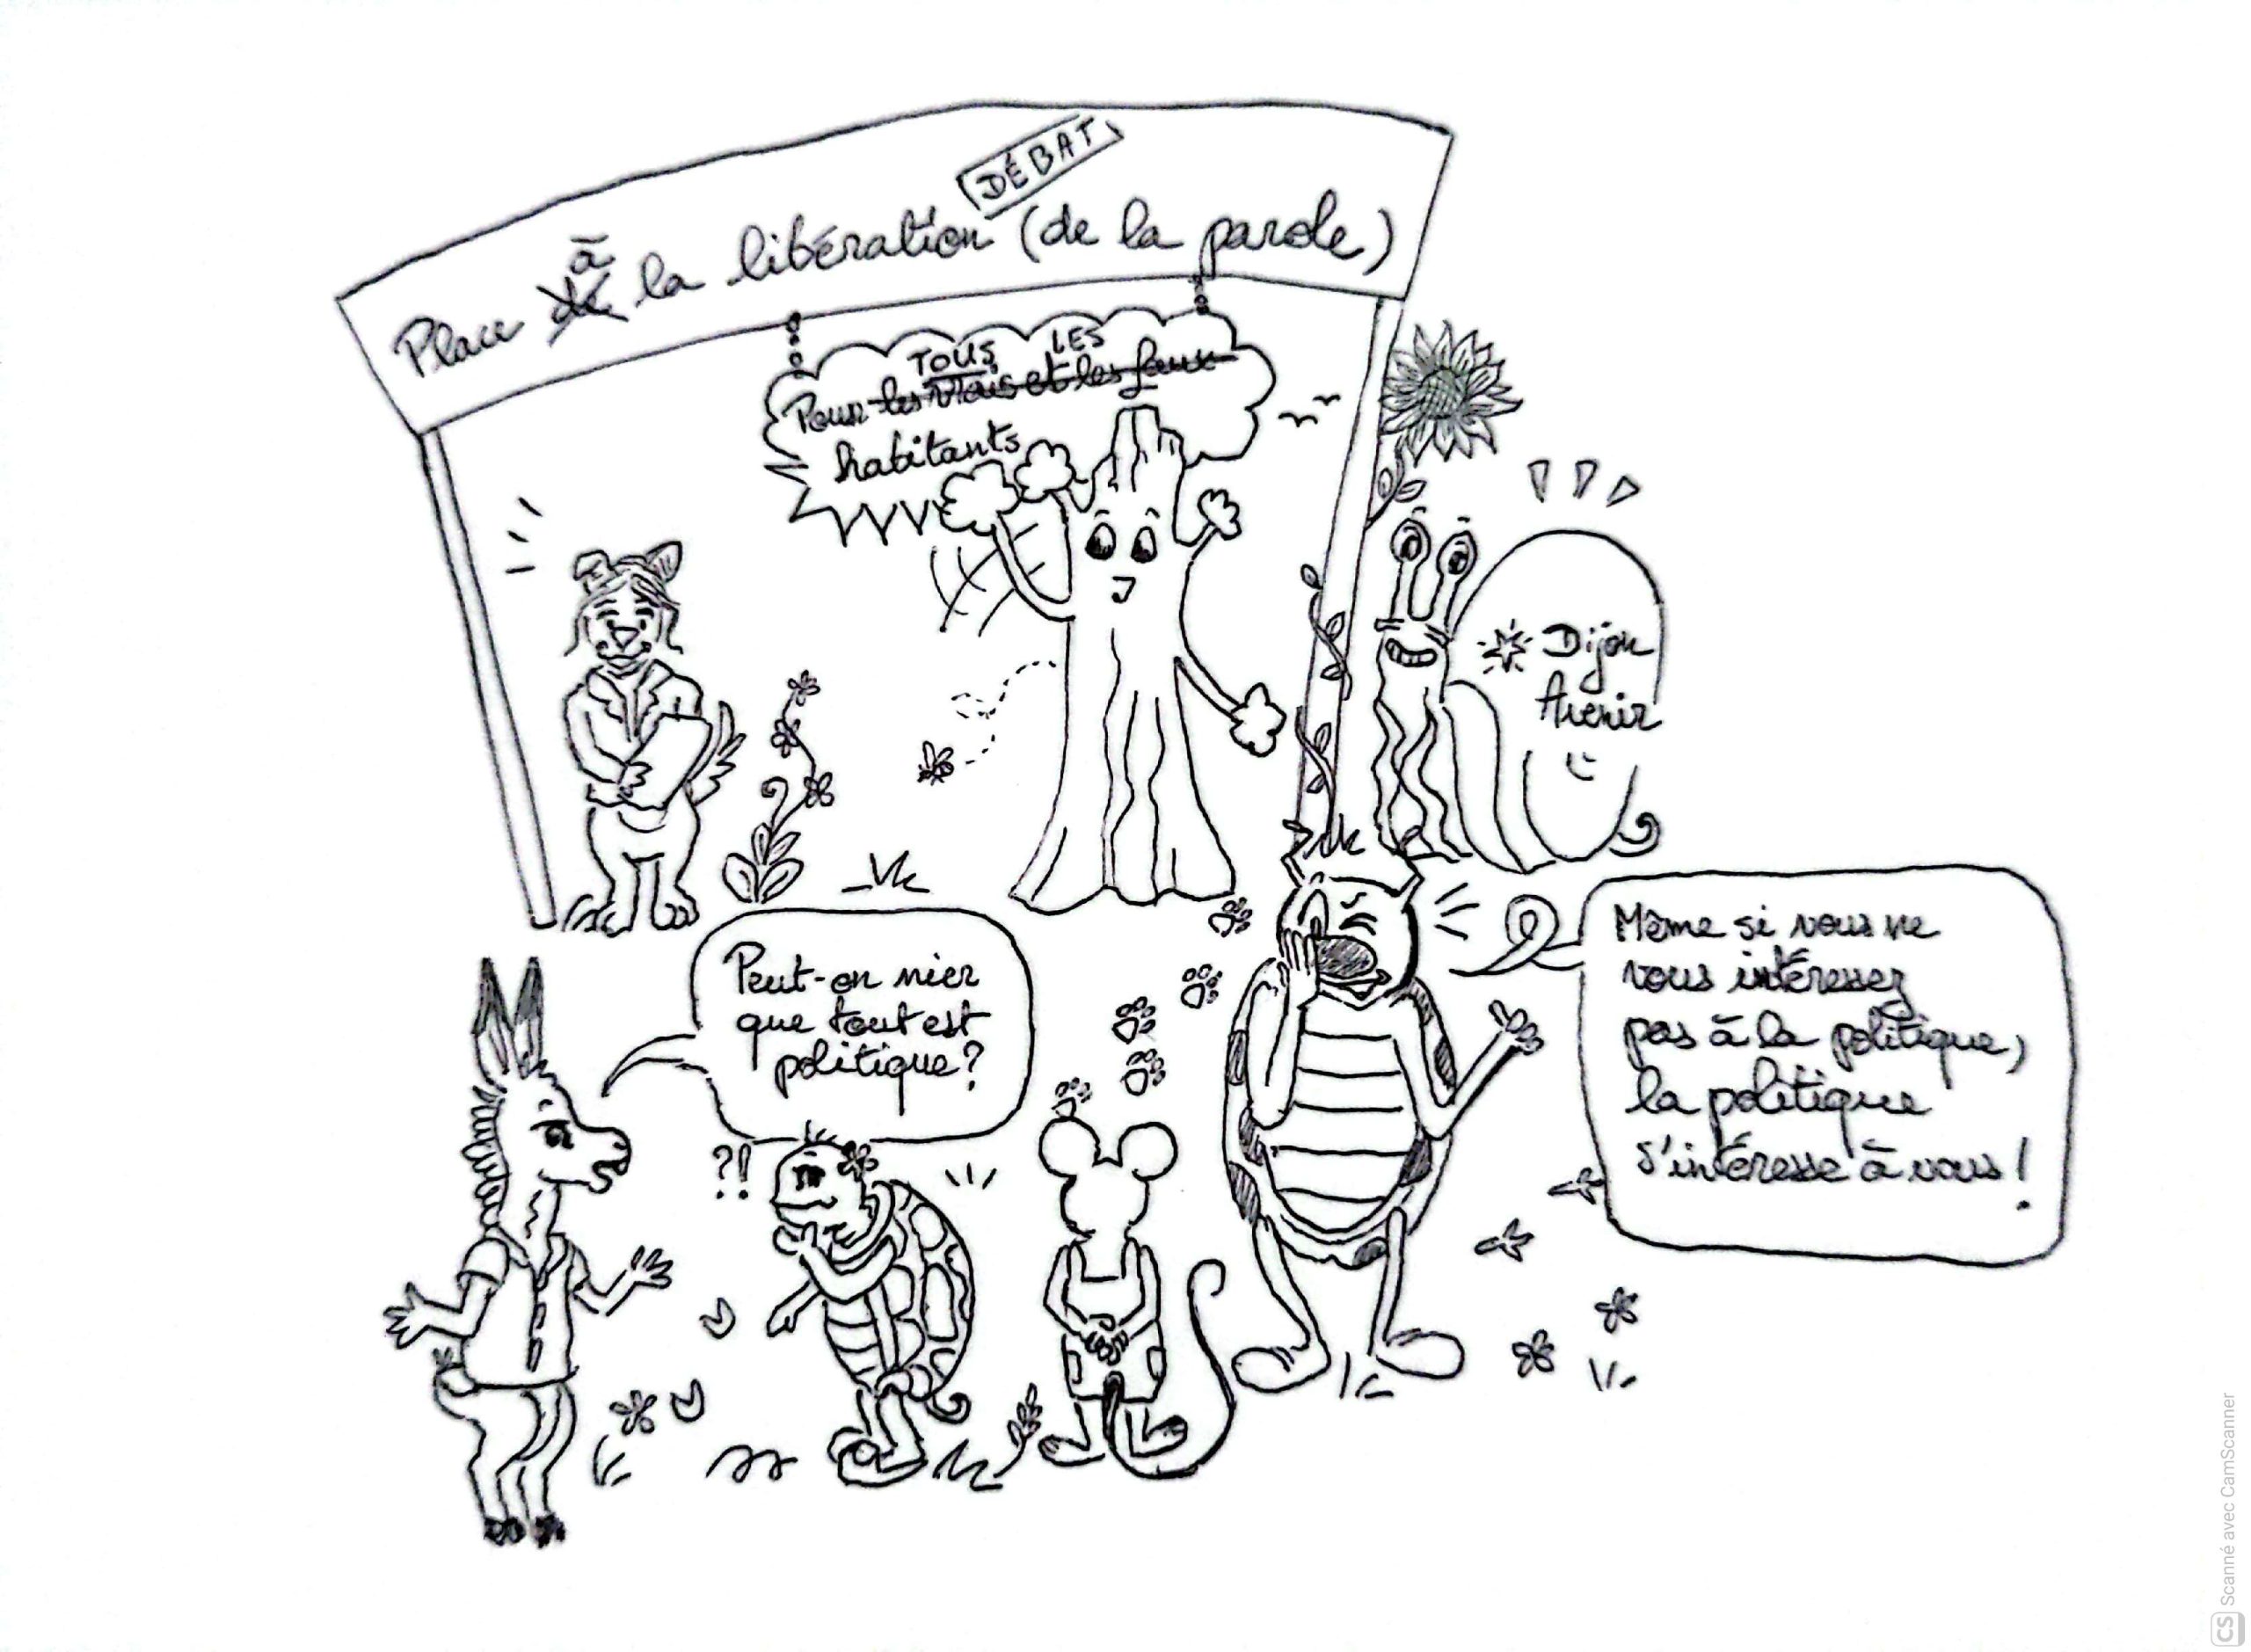 DÉBAT
Place de à la libération (de la parole)
TOUS LES
Pour les vrais et les faux
habitants
Dijon
Avenir
Peut-on nier
que tout est
politique?
?!
Même si vous ne
vous intéressez
pas à la politique,
la politique
s'intéresse à vous!
CS Scanné avec CamScanner